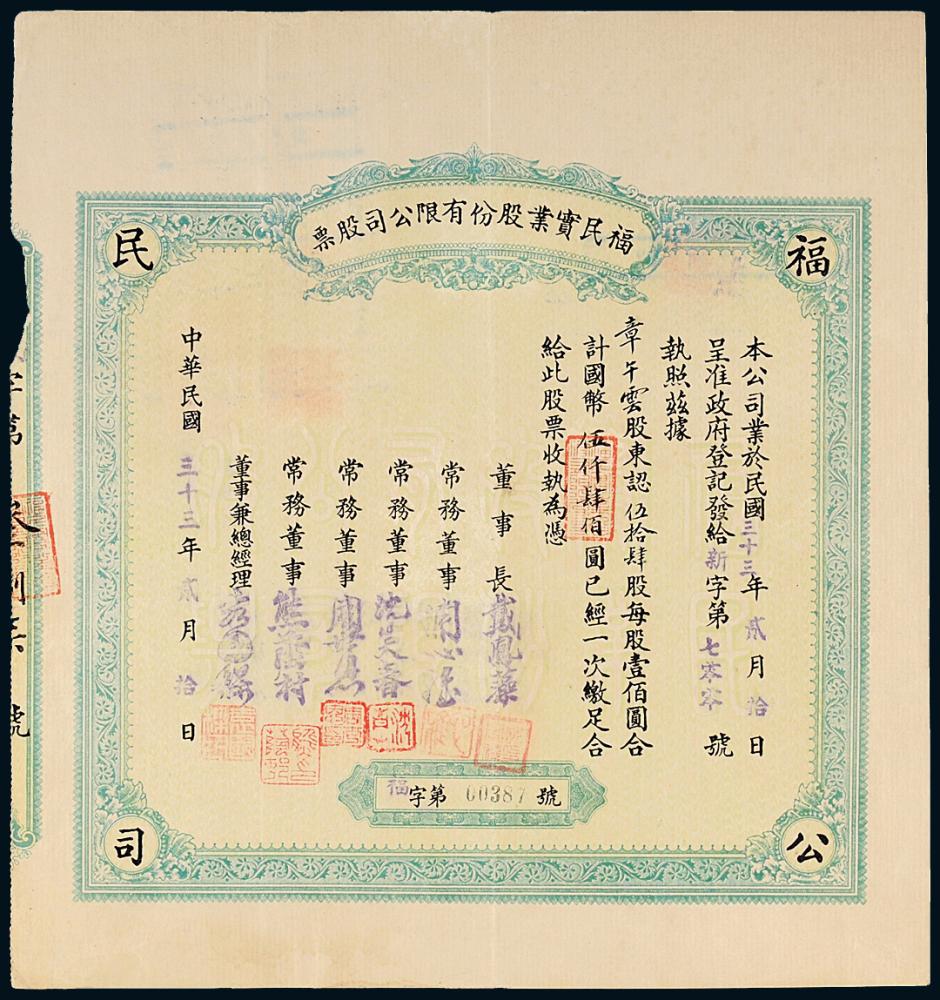 福民實業股份有限公司股票
福民公司
本公司業於民國三十三年貳月拾日
呈准政府登記發給新字第七零零號
執照茲據
章午雲股東認伍拾肆股每股壹佰圓合
計國幣伍仟肆佰圓已經一次繳足合
給此股票收執為憑
董事長戴鳳藻
常務董事
常務董事沈奐春
常務董事周
常務董事熊蔭村
董事兼總經理
中華民國三十三年貳月拾日
福字第00387號
字第
號